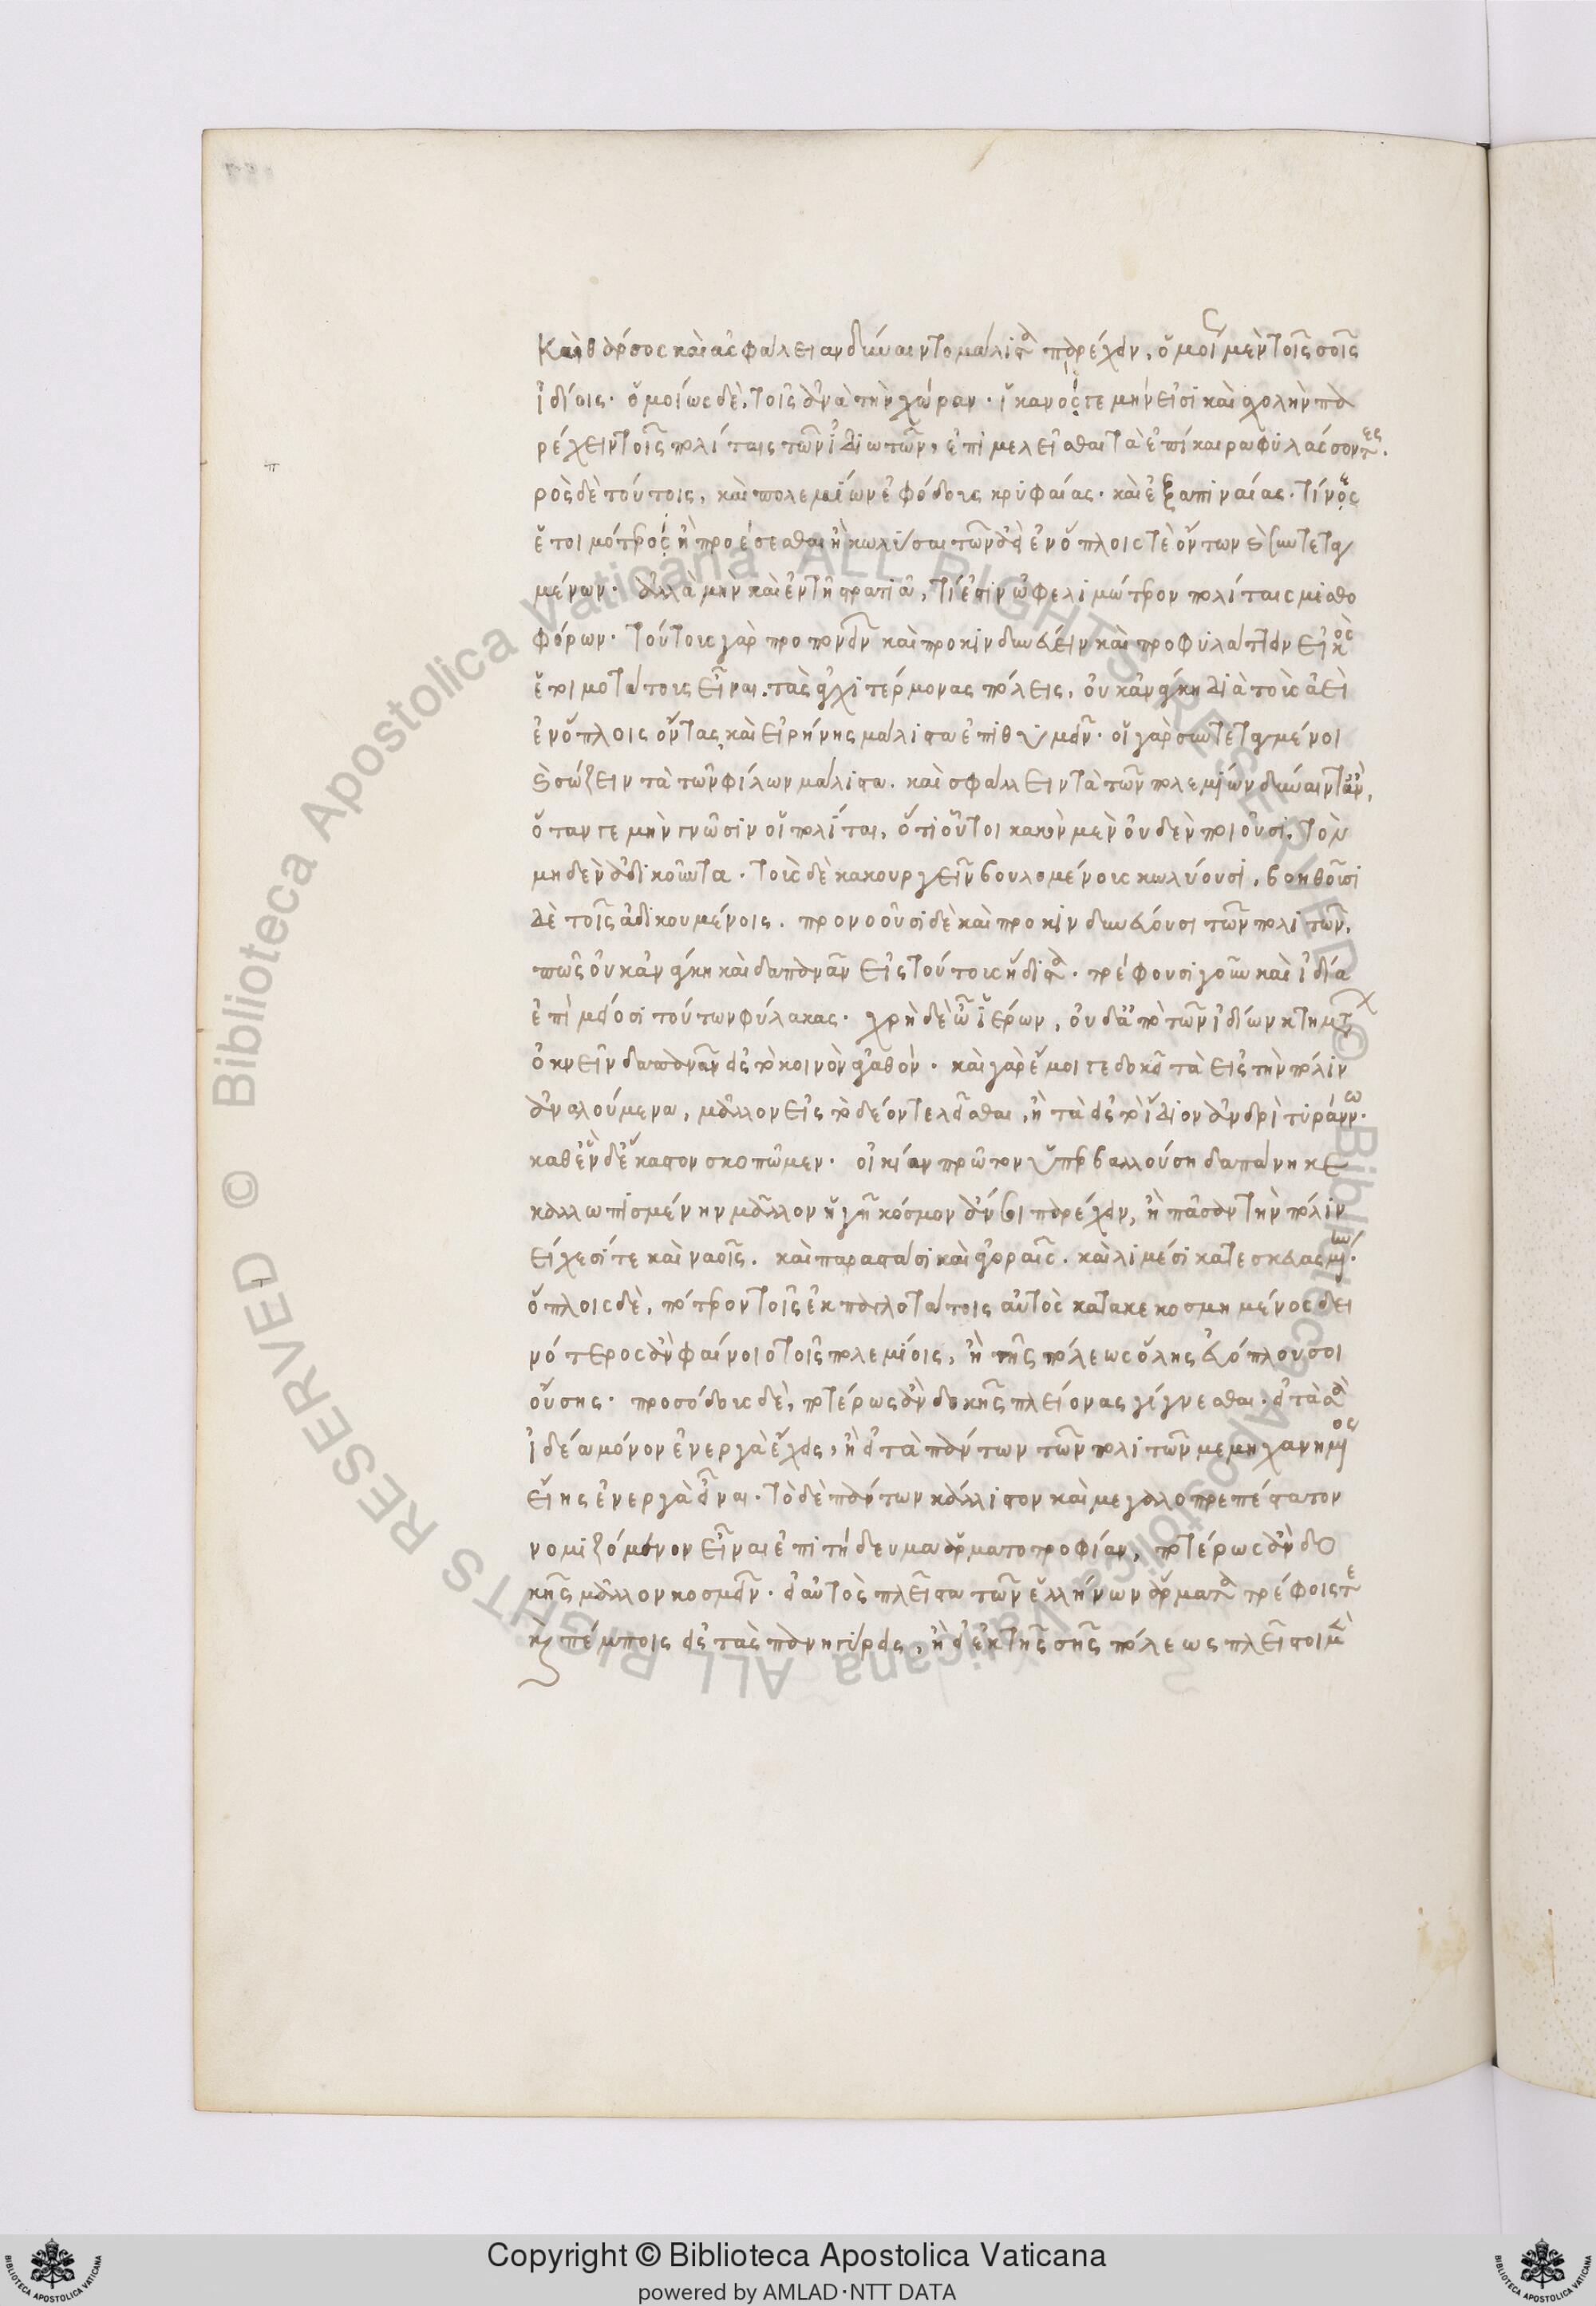 Καὶ θάρσος καὶ ἀσφάλειαν δύναιντο μάλιστα παρέχειν, ὁμοί μὲν τοῖς σοῖς
ἰδίοις· ὁμοίως δὲ, τοῖς ἀνὰ τὴν χώραν· ἱκανοί γε μήν εἰσι καὶ σχολὴν πα
ρέχειν τοῖς πολίταις τῶν ἰδιωτῶν, ἐπιμελεῖσθαι τὰ ἐπίκαιρα φυλάσσοντες.
ρὸς δὲ τούτοις, καὶ πολεμίων ἐφόδους κρυφαίας· καὶ ἐξαπιναίας· τίνες
ἑτοιμότεροι ἢ προέσεσθαι ἢ κωλῦσαι τῶν ἀεὶ ἐν ὅπλοις τὲ ὄντων καὶ συντεταγ
μένων· ἀλλὰ μὴν καὶ ἐν τῇ στρατιᾷ, τί ἐστιν ὠφελιμώτερον πολίταις μισθο
φόρων· τούτους γὰρ προπονεῖν καὶ προκινδυνεύειν καὶ προφυλάττειν εἰκὸς
ἑτοιμοτάτους εἶναι. τὰς ἀγχιτέρμονας πόλεις, οὐκ ἀνάγκη διὰ τοὺς ἀεὶ
ἐν ὅπλοις ὄντας, καὶ εἰρήνης μάλιστα ἐπιθυμεῖν· οἱ γὰρ συντεταγμένοι
καὶ σώζειν τὰ τῶν φίλων μάλιστα. καὶ σφάλλειν τὰ τῶν πολεμίων δύναιντ' ἂν,
ὅταν γε μὴν γνῶσιν οἱ πολῖται, ὅτι οὗτοι κακὸν μὲν οὐδὲν ποιοῦσι, τὸν
μηδὲν ἀδικοῦντα· τοὺς δὲ κακουργεῖν βουλομένους κωλύουσι, βοηθοῦσι
δὲ τοῖς ἀδικουμένοις. προνοοῦσι δὲ καὶ προκινδυνεύουσι τῶν πολιτῶν,
πῶς οὐκ ἀνάγκη καὶ δαπανᾶν εἰς τούτους ἥδιστα· τρέφουσι γοῦν καὶ ἰδίᾳ
ἐπὶ μείοσι τούτων φύλακας· χρὴ δὲ ὦ ἱέρων, οὐδ' ἀπὸ τῶν ἰδίων κτημάτων
ὀκνεῖν δαπανᾶν εἰς τὸ κοινὸν ἀγαθὸν· καὶ γὰρ ἔμοιγε δοκεῖ τὰ εἰς τὴν πόλιν
ἀναλούμενα, μᾶλλον εἰς τὸ δέον τελεῖσθαι, ἢ τὰ εἰς τὸ ἴδιον ἀνδρὶ τυράννω·
καθ' ἓν δ' ἕκαστον σκοπῶμεν· οἰκίαν πρῶτον ὑπερβαλλούσῃ δαπάνῃ κε
καλλωπισμένην μᾶλλον ἡγῇ κόσμον ἄν σοι παρέχειν, ἢ πᾶσαν τὴν πόλιν
τείχεσί τε καὶ ναοῖς. καὶ παραστάσι καὶ ἀγοραῖς. καὶ λιμέσι κατεσκευασμένην·
ὅπλοις δὲ, πότερον τοῖς ἐκπαγλοτάτοις αὐτὸς κατακεκοσμημένος δει
νότερος ἂν φαίνοιο τοῖς πολεμίοις, ἢ τῆς πόλεως ὅλης εὐόπλου σοι
οὔσης· προσόδους δὲ, ποτέρως ἂν δοκῇς πλείονας γίγνεσθαι· εἰ τὰ σὰ
ἰδίᾳ μόνον ἐνεργὰ ἔχεις, ἢ εἰ τὰ πάντων τῶν πολιτῶν μεμηχανημένος
εἴης ἐνεργὰ εἶναι· τὸ δὲ πάντων κάλλιστον καὶ μεγαλοπρεπέστατον
νομιζόμενον εἶναι ἐπιτήδευμα ἁρματοτροφίαν, ποτέρως ἂν δο
κῇς μᾶλλον κοσμεῖν· εἰ αὐτὸς πλεῖστα τῶν ἑλλήνων ἅρματα τρέφοις τε
καὶ πέμποις εἰς τὰς πανηγύρεις, ἢ εἰ ἐκ τῆς σῆς πόλεως πλεῖστοι μὲν
Copyright © Biblioteca Apostolica Vaticana
powered by AMLAD·NTT DATA